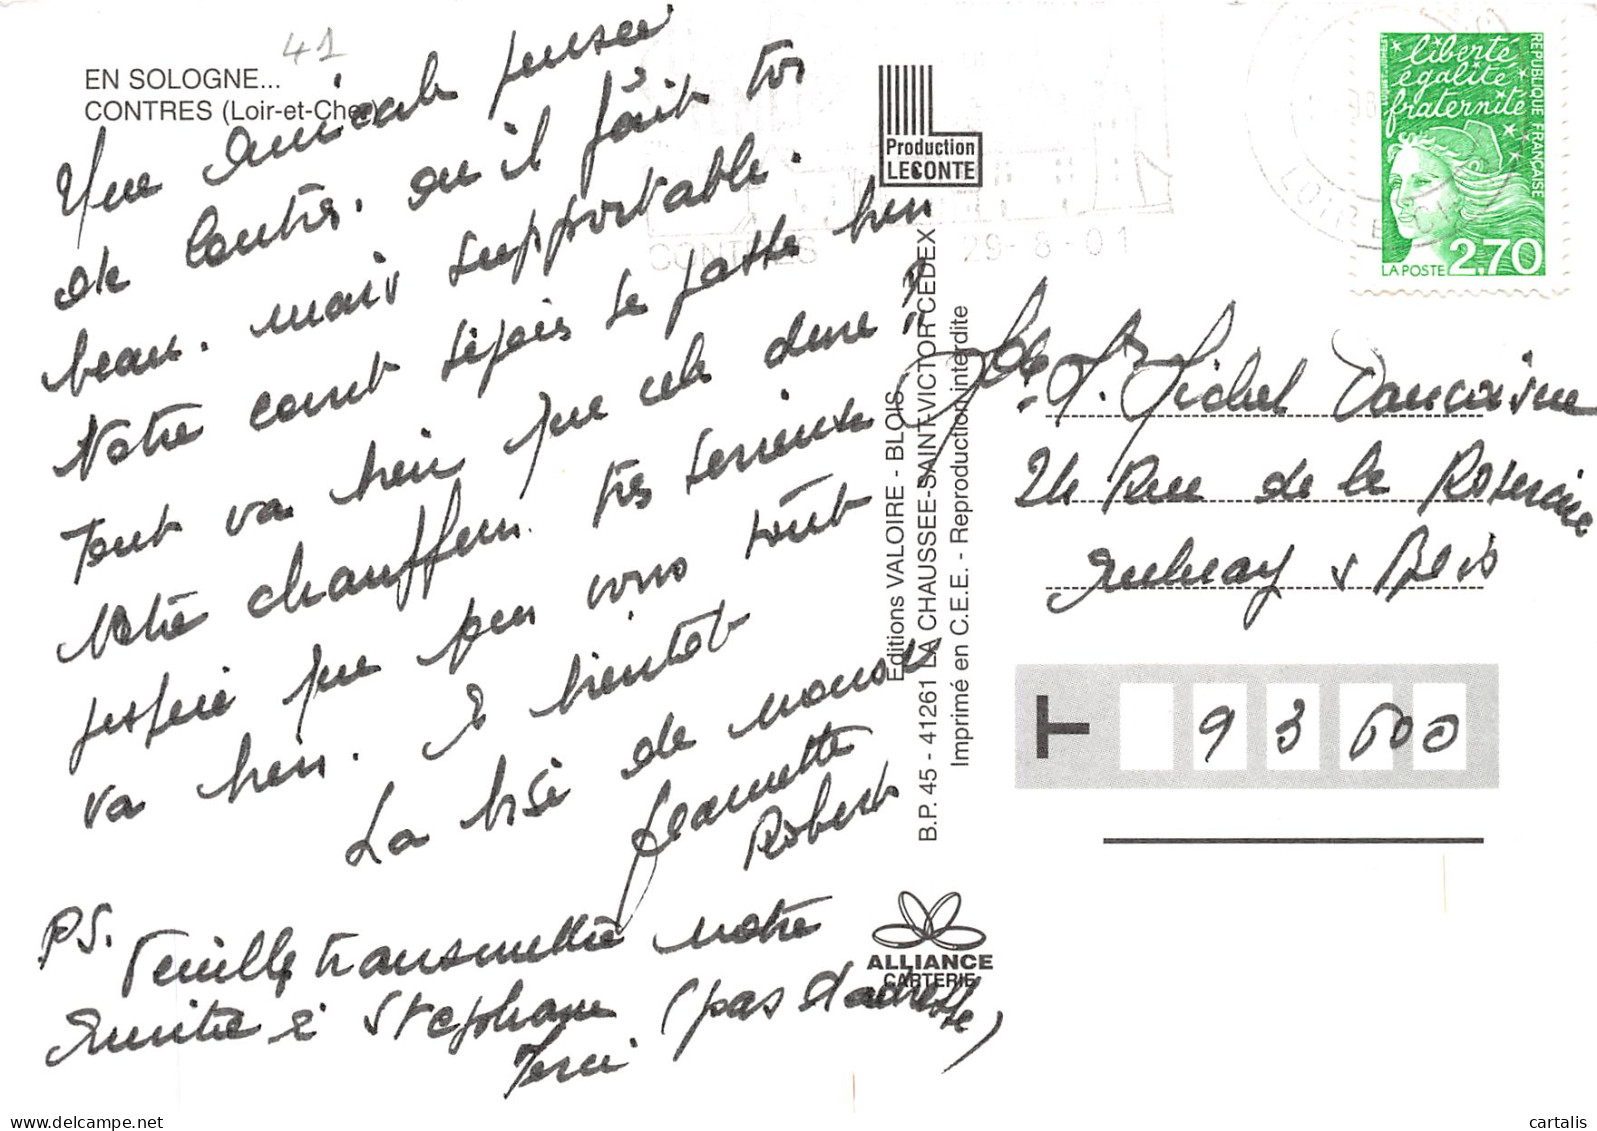 EN SOLOGNE...
CONTRES (Loir-et-Cher)
41
Une amicale pensée
de Contres. où il fait très
beau. mais supportable.
Notre court séjour se passe bien
Tout va bien que cela dure !!
Notre chauffeur très sérieux
j'espère que pour vous tout
va bien. à bientôt
La bise de nous 2
Jeannette
Robert
PS.
Veuillez transmettre notre
Amitié à Stéphane (pas d'adresse)
Merci
Production
LECONTE
Editions VALOIRE - BLOIS
B.P. 45 - 41261 LA CHAUSSEE-SAINT-VICTOR CEDEX
Imprimé en C.E.E. - Reproduction interdite
ALLIANCE
CARTERIE
CONTRES 29-8-01
LOIR ET CHER
liberté
égalité
fraternité
REPUBLIQUE FRANÇAISE
LA POSTE 2,70
Michel
24 Rue de la
Aulnay s Bois
T 93600
cartalis
delcampe.net